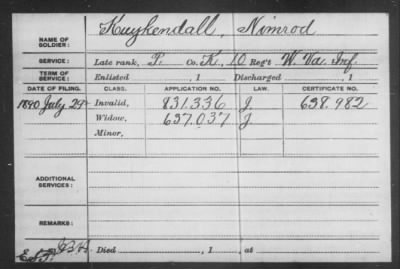 NAME OF SOLDIER: Kuykendall, Nimrod
SERVICE: Late rank, P. Co. K, 10 Reg't W. Va. Inf.
TERM OF SERVICE: Enlisted , 1 Discharged , 1
DATE OF FILING. CLASS. APPLICATION NO. LAW. CERTIFICATE NO.
1890 July 29 Invalid, 831.336 J. 638.982
Widow, 637.037 J
Minor,
ADDITIONAL SERVICES:
REMARKS:
Died , 1 , at